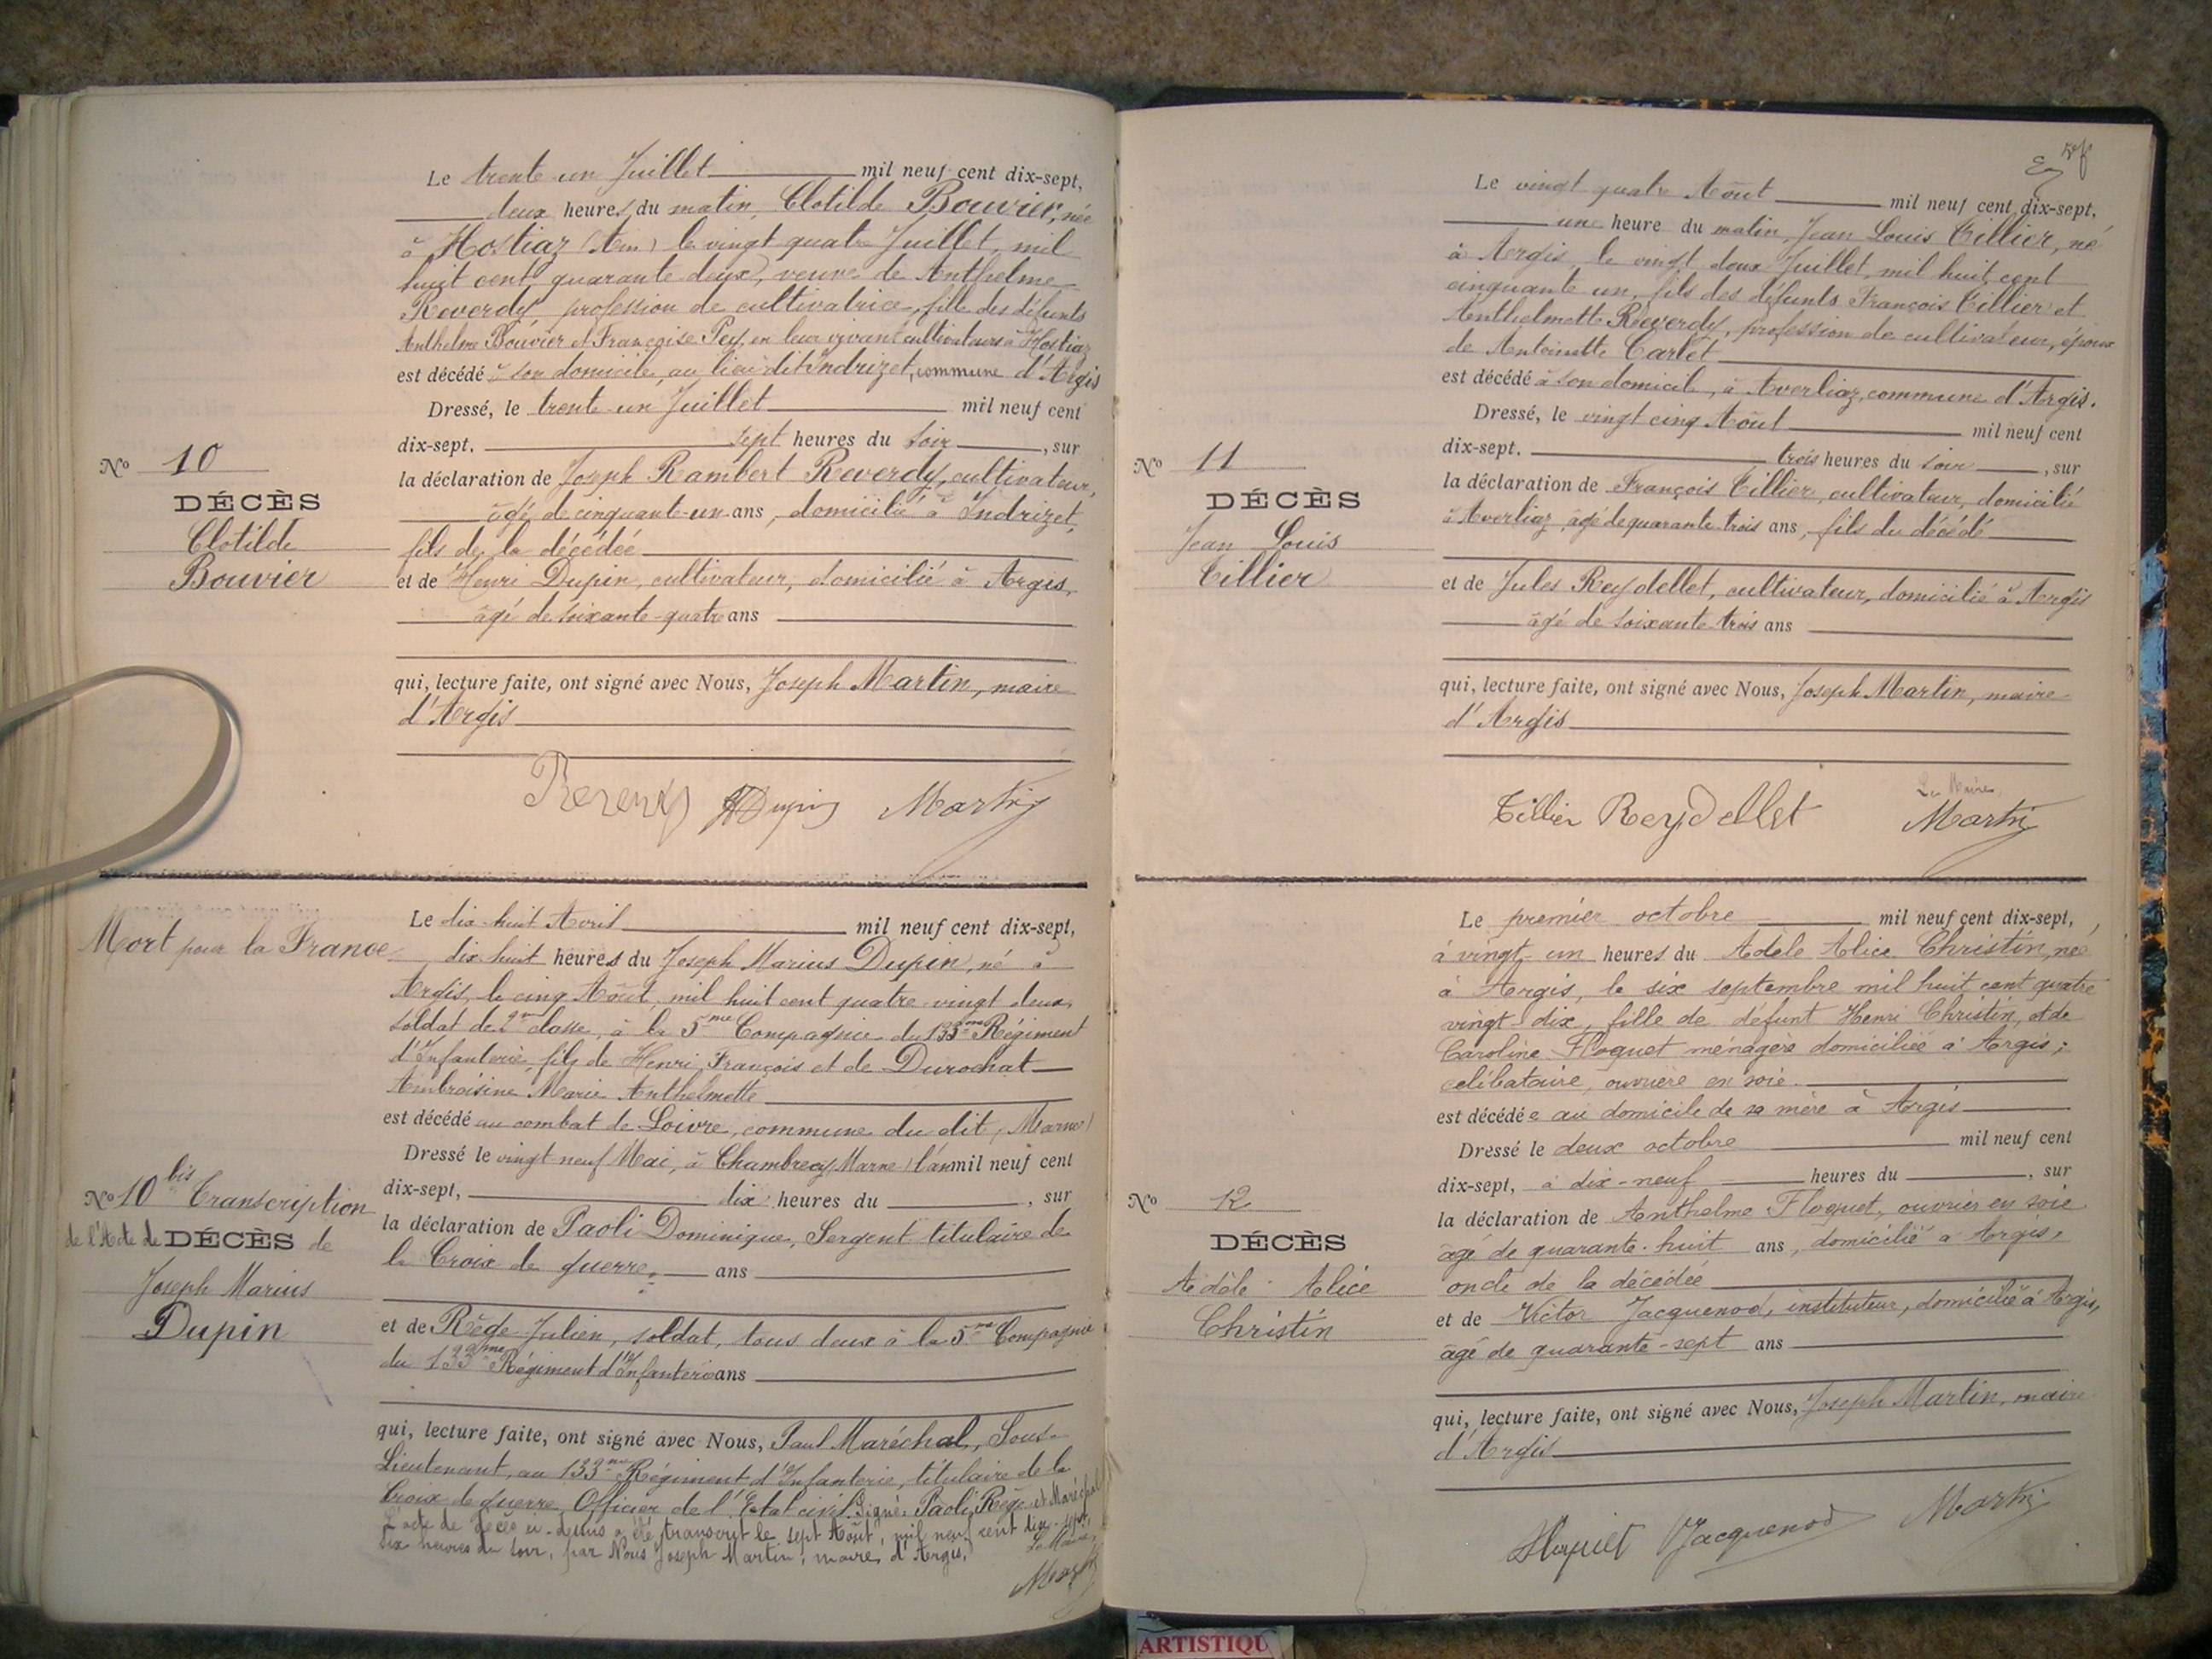 Le trente un Juillet mil neuf cent dix-sept,
deux heures du matin, Clotilde Bouvier, née
à Hostiaz (Ain) le vingt quatre Juillet, mil
huit cent quarante deux, veuve de Anthelme
Reverdy profession de cultivatrice, fille des défunts
Anthelme Bouvier et Françoise Pey, en leur vivant cultivateurs à Hostiaz
est décédé à son domicile, au lieu dit Indrizet, commune d'Argis
Dressé, le trente un Juillet mil neuf cent
dix-sept. sept heures du soir, sur
la déclaration de Joseph Rambert Reverdy, cultivateur,
âgé de cinquante-un ans, domicilié à Indrizet,
fils de la décédée
et de Henri Dupin, cultivateur, domicilié à Argis,
âgé de soixante-quatre ans
qui, lecture faite, ont signé avec Nous, Joseph Martin, maire
d'Argis
Nº 10
DÉCÈS
Clotilde
Bouvier
Reverdy HDupin Martin
Mort pour la France
Le dix-huit Avril mil neuf cent dix-sept,
dix huit heures du Joseph Marius Dupin, né à
Argis, le cinq Août, mil huit cent quatre-vingt deux,
soldat de 2me classe, à la 5me Compagnie du 133me Régiment
d'Infanterie, fils de Henri, François et de Durochat
Ambroisine Marie Anthelmette
est décédé au combat de Loivre, commune du dit, (Marne)
Dressé le vingt neuf Mai, à Chambrecy (Marne) l'an mil neuf cent
dix-sept, dix heures du , sur
la déclaration de Paoli Dominique, Sergent titulaire de
la Croix de guerre, ans
et de Rège Julien, soldat, tous deux à la 5me Compagnie
du 133me Régiment d'Infanterie ans
qui, lecture faite, ont signé avec Nous, Paul Maréchal, Sous-
Lieutenant, au 133me Régiment d'Infanterie, titulaire de la
Croix de guerre, Officier de l'Etat civil. Signé: Paoli, Rège et Maréchal
L'acte de décès ci-dessus a été transcrit le sept Août, mil neuf cent dix-sept,
six heures du soir, par Nous Joseph Martin, maire, d'Argis,
Le Maire,
Martin
Nº 10 bis Transcription
de l'Acte de DÉCÈS de
Joseph Marius
Dupin
Le vingt quatre Août mil neuf cent dix-sept,
une heure du matin, Jean Louis Tillier, né
à Argis, le vingt deux Juillet, mil huit cent
cinquante un, fils des défunts François Tillier et
Anthelmette Reverdy, profession de cultivateur, époux
de Antoinette Carlet
est décédé à son domicile, à Averliaz, commune d'Argis.
Dressé, le vingt cinq Août mil neuf cent
dix-sept. trois heures du soir, sur
la déclaration de François Tillier, cultivateur, domicilié
à Averliaz, âgé de quarante-trois ans, fils du décédé
et de Jules Reydellet, cultivateur, domicilié à Argis
âgé de soixante-trois ans
qui, lecture faite, ont signé avec Nous, Joseph Martin, maire
d'Argis
Nº 11
DÉCÈS
Jean Louis
Tillier
Le Maire,
Tillier Reydellet Martin
Le premier octobre mil neuf cent dix-sept,
à vingt-un heures du Adèle Alice Christin, née
à Argis, le six septembre mil huit cent quatre
vingt-dix, fille de défunt Henri Christin, et de
Caroline Floquet ménagère domiciliée à Argis;
célibataire, ouvrière en soie
est décédée au domicile de sa mère à Argis
Dressé le deux octobre mil neuf cent
dix-sept, à dix-neuf heures du , sur
la déclaration de Anthelme Floquet, ouvrier en soie
âgé de quarante-huit ans, domicilié à Argis,
oncle de la décédée
et de Victor Jacquenod, instituteur, domicilié à Argis,
âgé de quarante-sept ans
qui, lecture faite, ont signé avec Nous, Joseph Martin, maire
d'Argis
Nº 12
DÉCÈS
Adèle Alice
Christin
Floquet VJacquenod Martin
ARTISTIQU